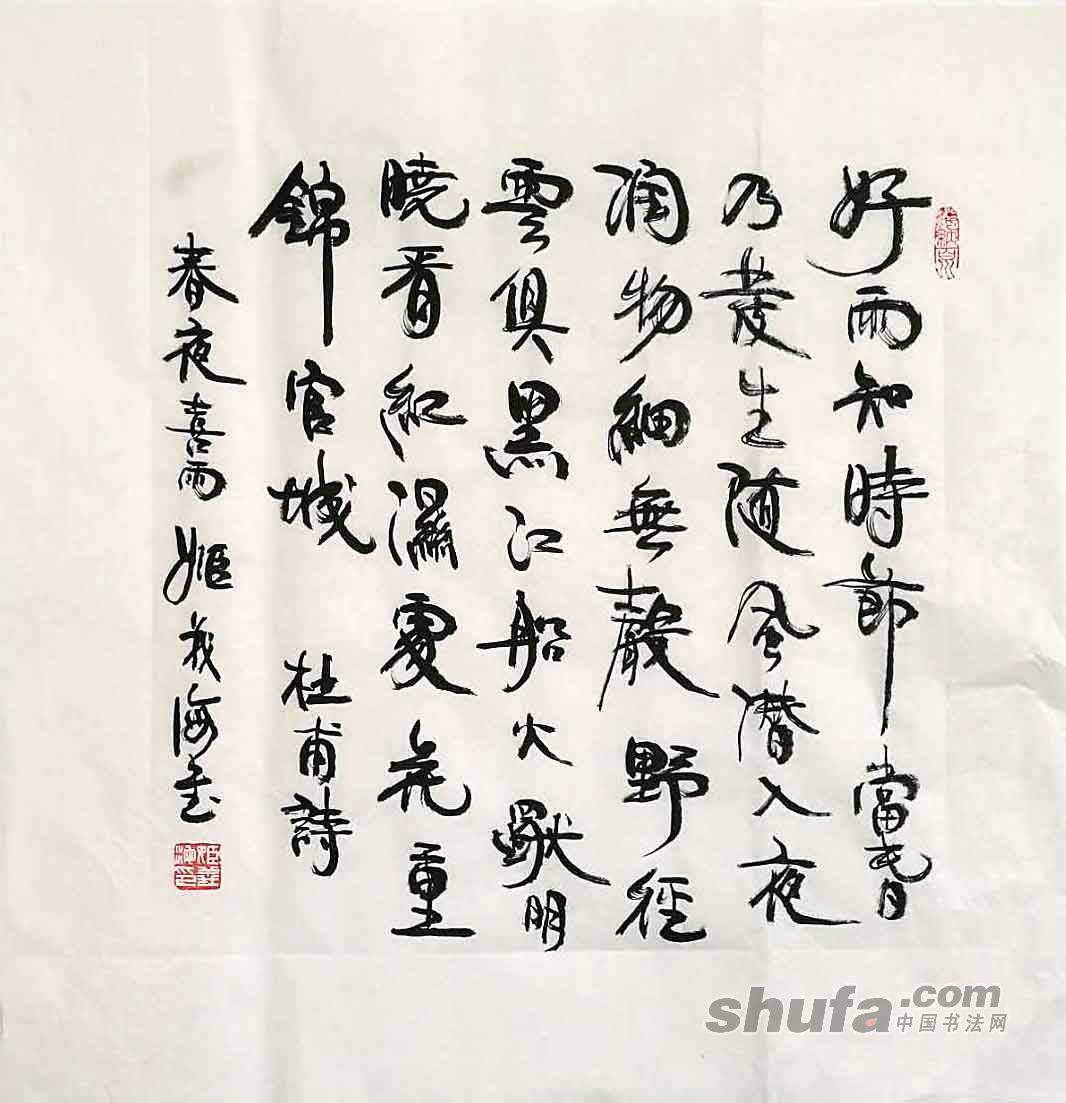 好雨知時節當春
乃發生随風潜入夜
润物細無聲野徑
雲俱黑江船火獨明
曉看紅濕處花重
錦官城 杜甫詩
春夜喜雨 姬義海書
姬義海印
shufa.com
中国书法网